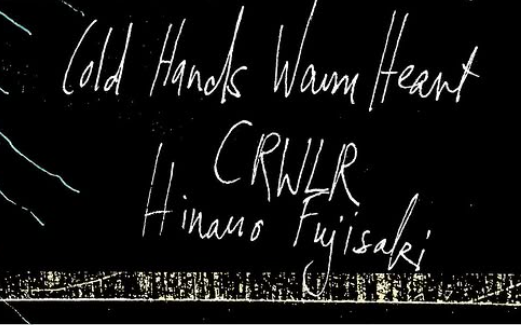 Cold Hands Warm Heart
CRWLR
Hinano Fujisaki